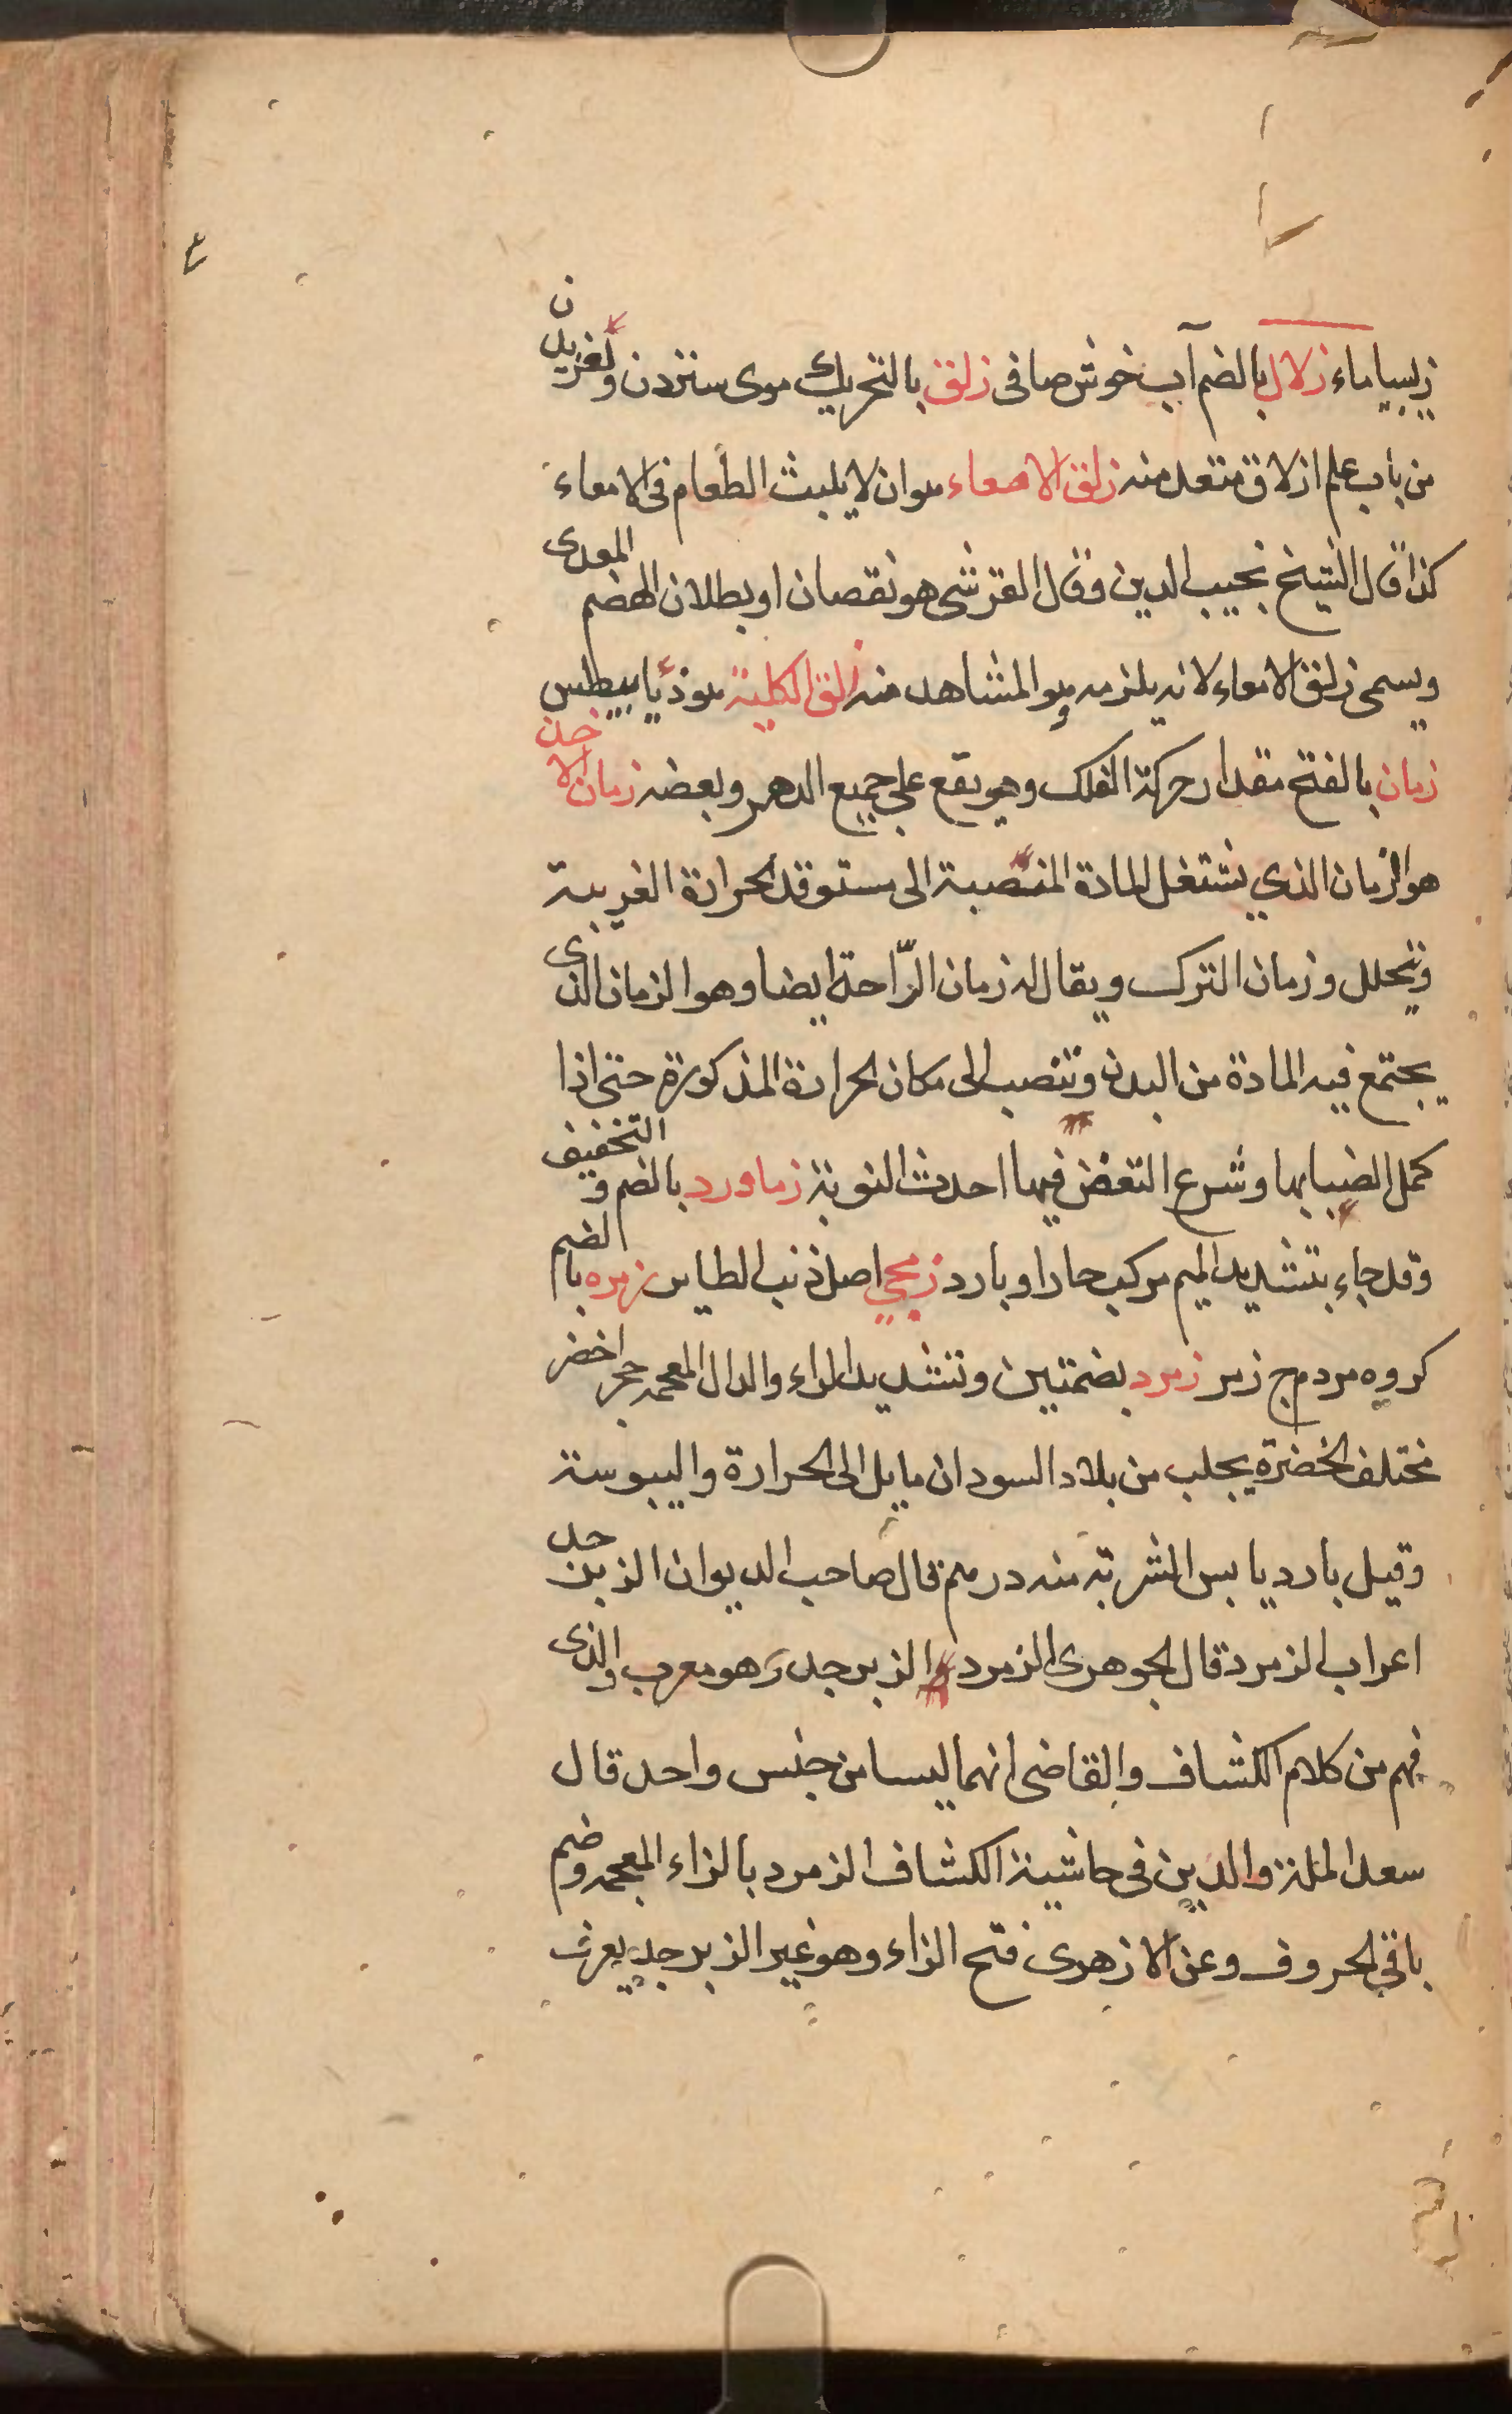 زيبيا ماء زلال بالضم آب خوش صافى زلق بالتحريك موى ستردن ولغزيدن
من باب علم ازلاق متعد منه زلق الامعاء هو ان لا يلبث الطعام فى الامعاء
كذا قال الشيخ نجيب الدين وقال القرشى هو نقصان او بطلان الهضم المعدى
ويسمى زلق الامعاء لانه يلزمه هو المشاهد منه زلق الكلية هو ذيابيطس
زمان بالفتح مقدار حركة الفلك وهو يقع على جميع الدهر وبعضه زمان الاخذ
هو الزمان الذي يشتغل المادة المنصبة الى مستوقد الحرارة الغريبة
وتتحلل وزمان الترك ويقال له زمان الرّاحة ايضا وهو الزمان الذى
يجتمع فيه المادة من البدن وتنصب الى مكان الحرارة المذكورة حتى اذا
كمل انصبابها وشرع التعفن فيها احدث النوبة زماورد بالضم والتخفيف
وقد جاء بتشديد الميم مركب حارا وبارد زمجي اصل ذنب الطاير زمره بالضم
كروه مردم ج زمر زمرد بضمتين وتشديد الراء والدال المعجمة حجر اخضر
مختلف الخضرة يجلب من بلاد السودان مايل الى الحرارة واليبوسة
وقيل بارد يابس الشربة منه درهم قال صاحب الديوان الزبرجد
اعراب الزمرد قال الجوهرى الزمرد الزبرجد وهو معرب والذى
فهم من كلام الكشاف والقاضى انهما ليسا من جنس واحد قال
سعد الملة والدين فى حاشية الكشاف الزمرد بالزاء المعجمة وضم
باقى الحروف وعن الازهرى فتح الزاء وهو غير الزبرجد يعرف